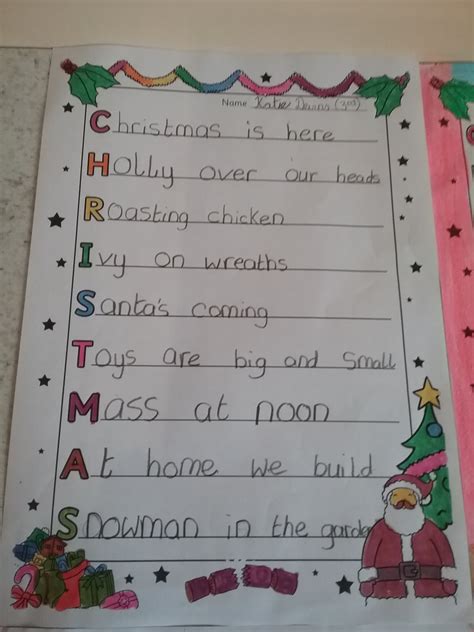 Name Katie (3rd)
Christmas is here
Holly over our heads
Roasting chicken
Ivy on wreaths
Santa's coming
Toys are big and Small
Mass at noon
At home we build
Snowman in the garden